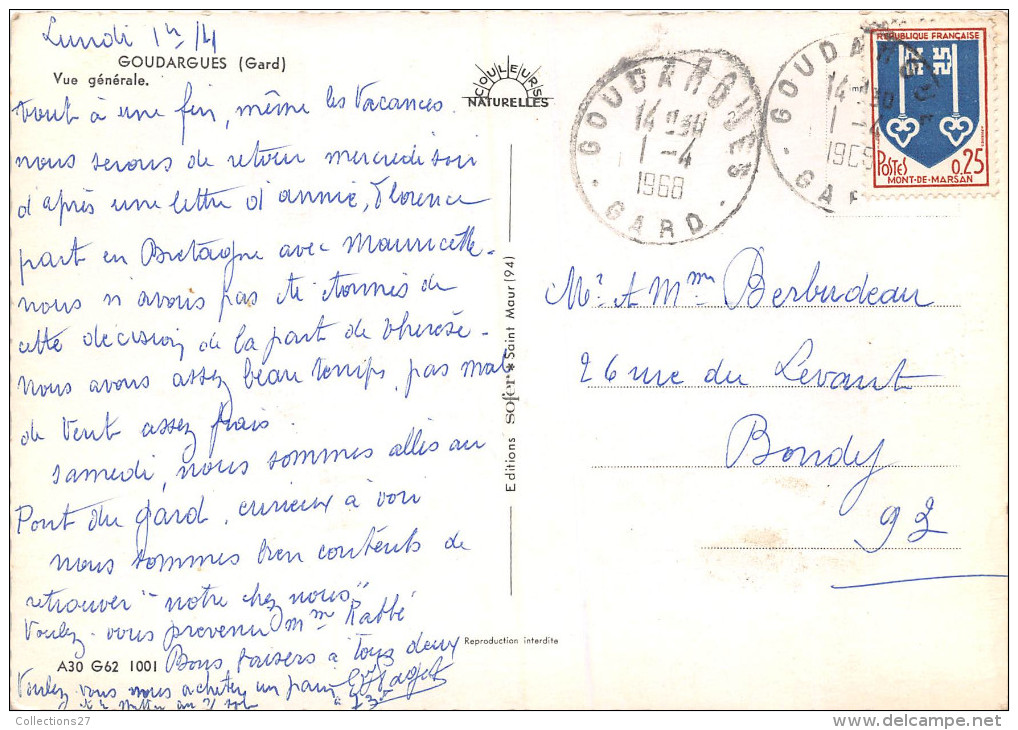 Lundi 1er/4
GOUDARGUES (Gard)
Vue générale.
tout à une fin, même les vacances.
nous serons de retour mercredi soir
d'après une lettre d'annie, Florence
part en Bretagne avec Mauricette.
nous n'avons pas été étonnés de
cette décision de la part de thérèse.
nous avons assez beau temps, pas mal
de vent assez frais.
samedi, nous sommes allés au
Pont du gard, curieux à voir
nous sommes bien contents de
retrouver "notre chez nous"
Voulez-vous prévenir Mme Rabbé
Bons baisers à tous deux
A30 G62 1001
Voulez vous nous acheter un pain
à
et le mettre au
COULEURS
NATURELLES
Editions sofer * Saint Maur (94)
Reproduction interdite
GOUDARGUES
14 H30
1 -4
1968
GARD
GOUDARGUES
14 H30
1 -4
1968
GARD
REPUBLIQUE FRANÇAISE
POSTES 0,25
MONT-DE-MARSAN
Mr & Mme Berbudeau
26 rue du Levant
Bondy
93
Collections27
delcampe.net